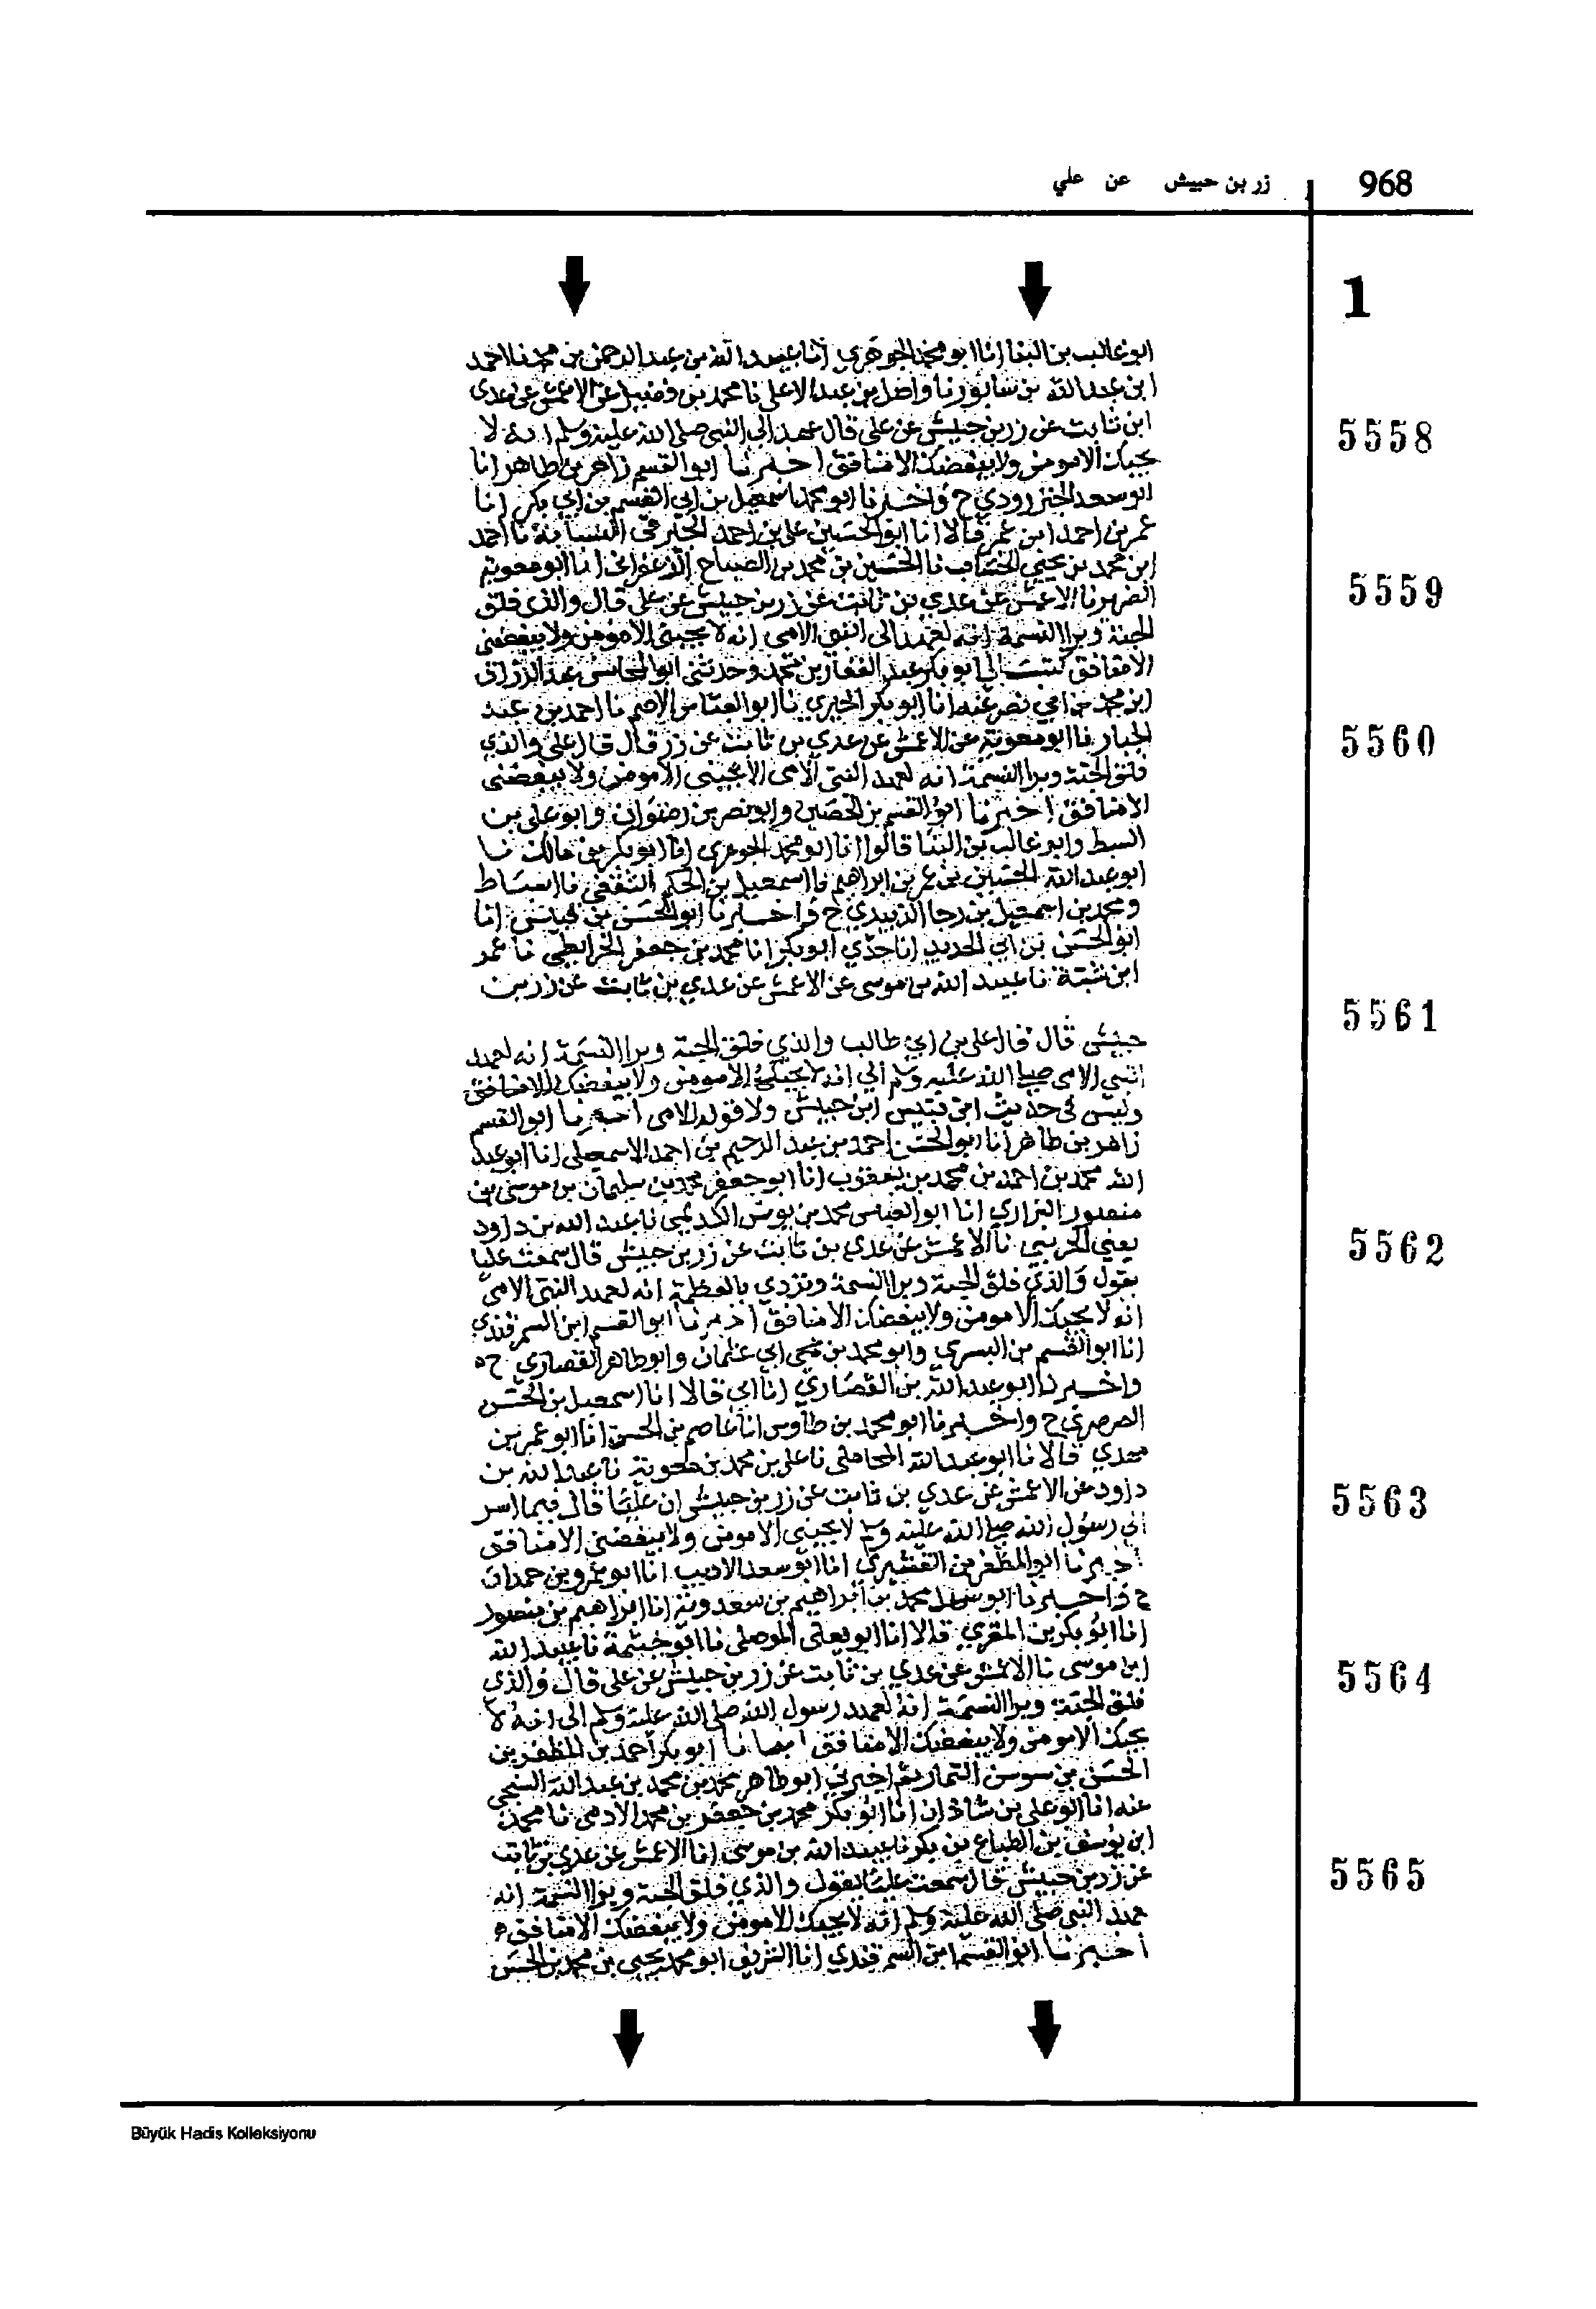 968
زر بن حبيش عن علي
1
ابو غالب بن البنا انا ابو محمد الجوهري انا عبيد الله بن عبد الرحمن بن محمد نا احمد
ابن عبد الله بن سابور نا واصل بن عبد الاعلى نا محمد بن فضيل عن الاعمش عن عدى
ابن ثابت عن زر بن حبيش عن علي قال عهد الي النبي صلى الله عليه وسلم انه لا
5558
يحبك الا مومن ولا يبغضك الا منافق اخبرنا ابو القسم زاهر بن طاهر انا
ابو سعد الجنزرودي ح واخبرنا ابو محمد اسمعيل بن ابي القسم بن ابي بكر انا
عمر بن احمد ابن عمر قالا انا ابو الحسين علي بن احمد نا احمد
ابن محمد بن يحيى الخشاب نا الحسين بن محمد بن الصباح الزعفراني انا ابو معوية
الضرير نا الاعمش عن عدي بن ثابت عن زر بن حبيش عن علي قال والذي فلق
5559
الحبة وبرا النسمة انه لعهد الى النبي الامي انه لا يحبني الا مومن ولا يبغضني
الا منافق كتب الي ابو بكر عبد الغفار بن محمد وحدثني ابو المحاسن عبد الرزاق
ابن محمد بن ابي نصر عنه انا ابو بكر الحيري نا ابو العباس الاصم نا احمد بن عبد
الجبار نا ابو معوية عن الاعمش عن عدي بن ثابت عن زر قال قال علي والذي
5560
فلق الحبة وبرا النسمة انه لعهد النبي الامي الا يحبني الا مومن ولا يبغضني
الا منافق اخبرنا ابو القسم بن الحصين وابو نصر بن رضوان وابو علي بن
السبط وابو غالب بن البنا قالوا انا ابو محمد الجوهري انا ابو بكر بن مالك نا
ابو عبد الله الحسين بن عمر بن ابراهيم نا اسمعيل بن الحكم الثقفي نا اسباط
ومحمد بن اسمعيل بن رجا الزبيدي ح واخبرنا ابو الحسن بن قبيس انا
ابو الحسن بن ابي الحديد انا جدي ابو بكر انا محمد بن جعفر الخرايطي نا عمر
ابن شبة نا عبيد الله بن موسى عن الاعمش عن عدي بن ثابت عن زر بن
5561
حبيش قال قال علي بن ابي طالب والذي فلق الحبة وبرا النسمة انه لعهد
النبي الامي صلى الله عليه وسلم الي انه لا يحبك الا مومن ولا يبغضك الا منافق
وليس في حديث ابن قبيس ابن حبيش ولا قوله الامي اخبرنا ابو القسم
زاهر بن طاهر انا ابو الحسن احمد بن عبد الرحيم بن احمد الاسمعيلي انا ابو عبد
الله محمد بن احمد بن محمد بن يعقوب انا ابو جعفر محمد بن سليمان بن موسى بن
منصور البزاري انا ابو العباس محمد بن يونس الكديمي نا عبد الله بن داود
يعني الخريبي نا الاعمش عن عدي بن ثابت عن زر بن حبيش قال سمعت عليا
5562
يقول والذي فلق الحبة وبرا النسمة وتردي بالعظمة انه لعهد النبي الامي
انه لا يحبك الا مومن ولا يبغضك الا منافق اخبرنا ابو القسم ابن السمرقندي
انا ابو القسم بن البسري وابو محمد بن ابي عثمان وابو طاهر القصاري ح
واخبرنا ابو عبد الله بن القصاري انا ابي قالا انا اسمعيل بن الحسن
الصرصري ح واخبرنا ابو محمد بن طاوس انا عاصم بن الحسن انا ابو عمر بن
مهدي قالا نا ابو عبد الله المحاملي نا علي بن محمد بن نا عبد الله بن
داود عن الاعمش عن عدي بن ثابت عن زر بن حبيش ان عليا قال فيما اسر
5563
الي رسول الله صلى الله عليه وسلم لا يحبني الا مومن ولا يبغضني الا منافق
اخبرنا ابو المظفر بن القشيري انا ابو سعد الاديب انا ابو عمرو بن حمدان
ح واخبرنا ابو سهل محمد بن ابراهيم بن سعدوية انا ابراهيم بن منصور
انا ابو بكر بن المقري قالا انا ابو يعلى الموصلي نا ابو خيثمة نا عبيد الله
ابن موسى نا الاعمش عن عدي بن ثابت عن زر بن حبيش عن علي قال والذي
5564
فلق الحبة وبرا النسمة انه لعهد رسول الله صلى الله عليه وسلم الى انه لا
يحبك الا مومن ولا يبغضك الا منافق انبانا ابو بكر احمد بن المظفر بن
الحسن بن سوسن التمار ثم اخبرني ابو طاهر محمد بن محمد بن عبد الله السنجي
عنه انا ابو علي بن شاذان انا ابو بكر محمد بن جعفر بن محمد الادمي نا محمد
ابن يوسف بن الطباع بن بكر نا عبيد الله بن موسى انا الاعمش عن عدي بن ثابت
عن زر بن حبيش قال سمعت عليا يقول والذي فلق الحبة وبرا النسمة انه
5565
عهد النبي صلى الله عليه وسلم انه لا يحبك الا مومن ولا يبغضك الا منافق
اخبرنا ابو القسم ابن السمرقندي انا الشريف ابو محمد يحيى بن محمد بن الحسن
Büyük Hadis Kolleksiyonu